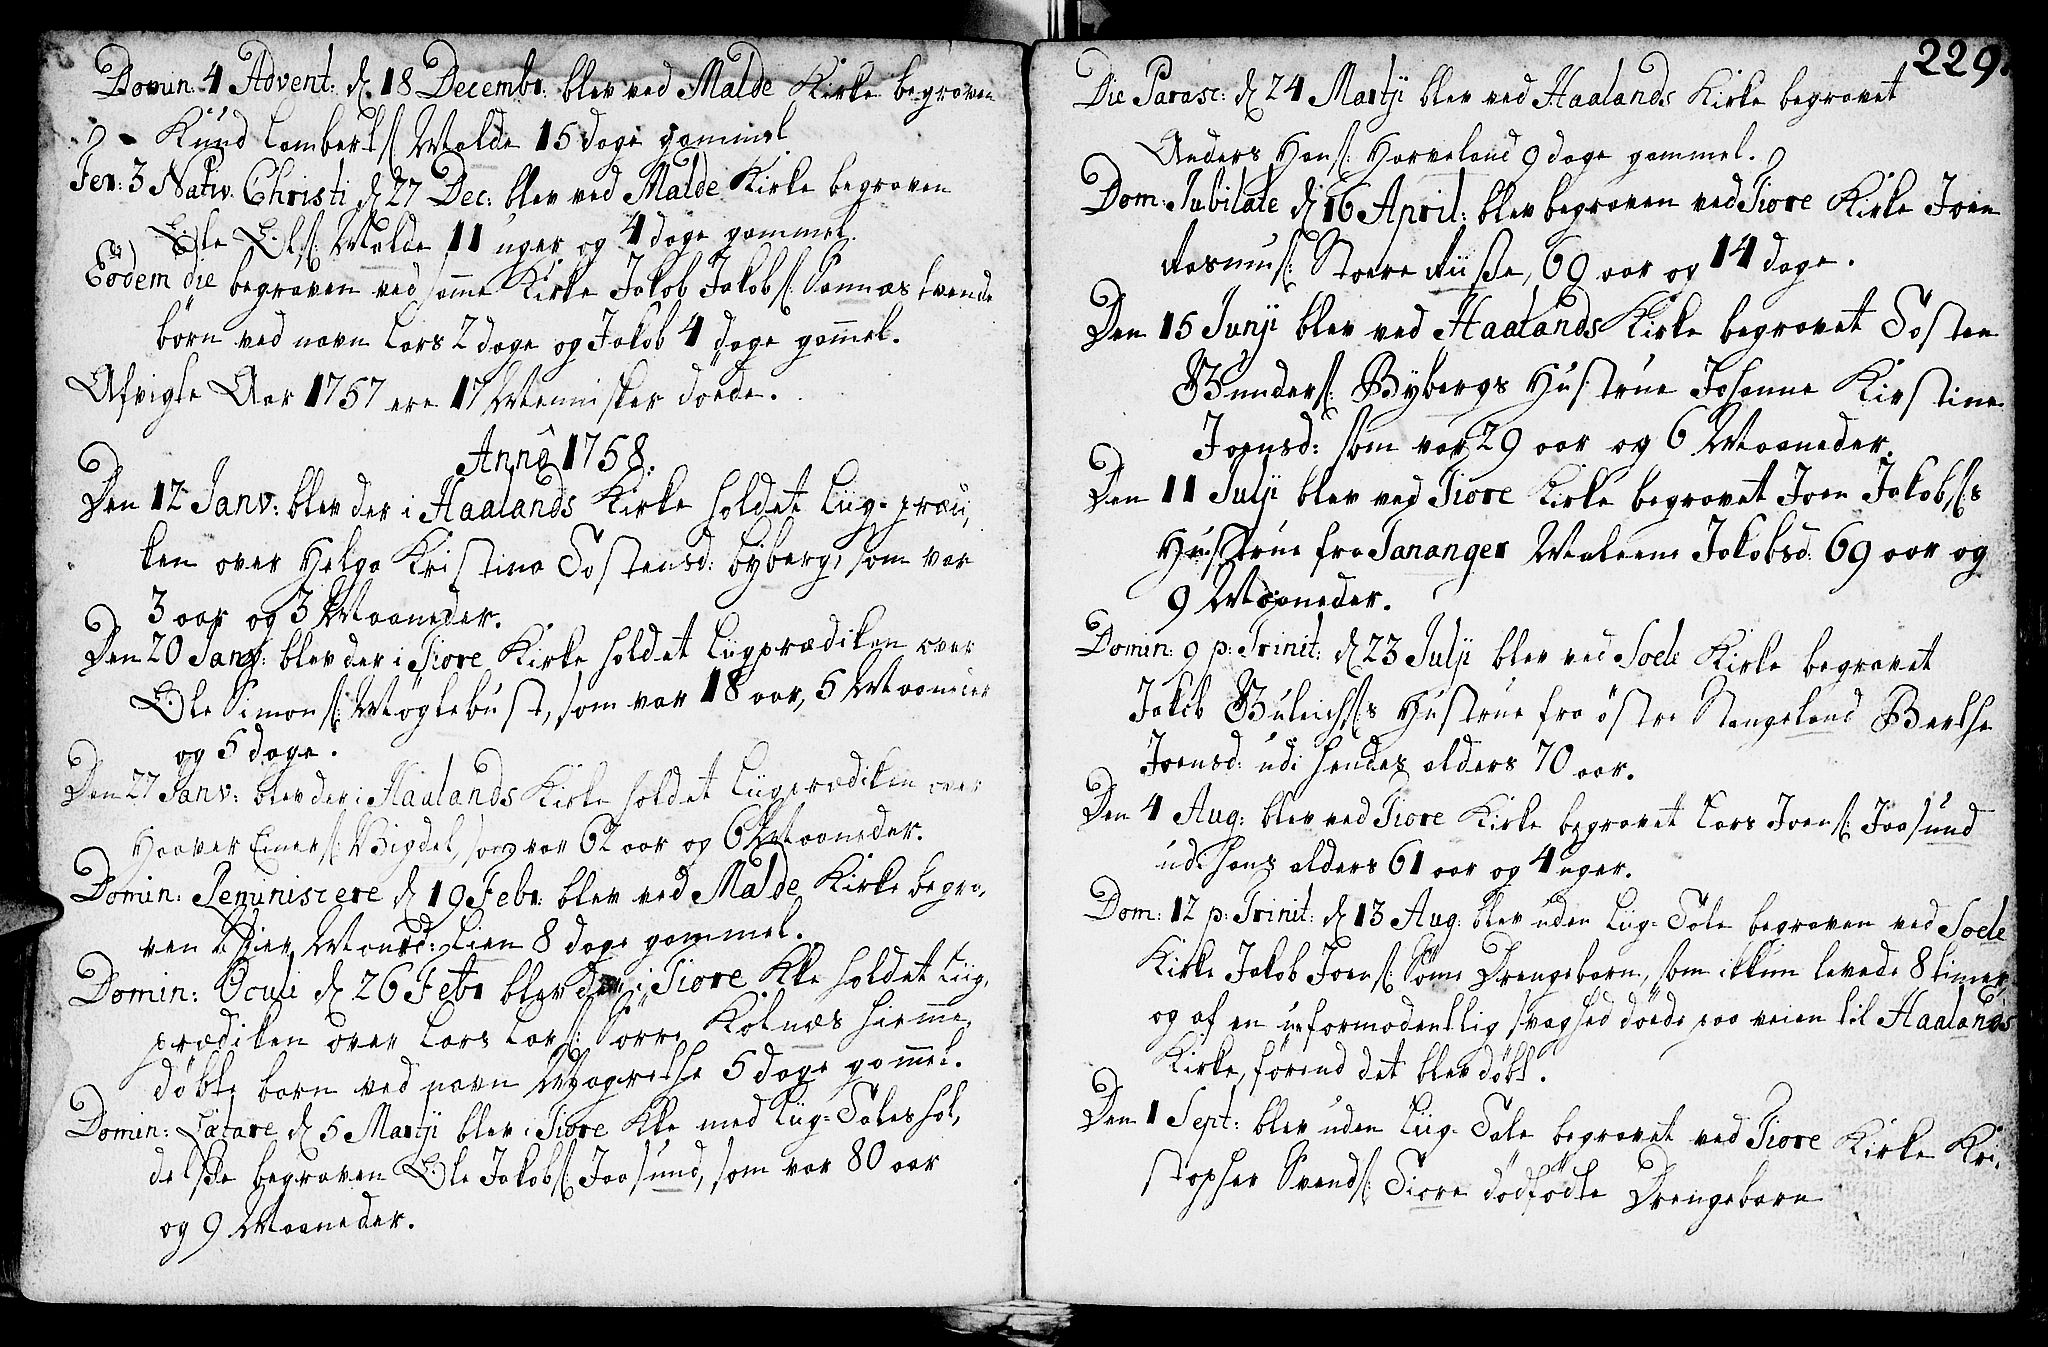 Domin: 4 Advent: d. 18 Decembr: blev ved Malde Kirke begraven
Knud Lambertſ: Malde 15 dage gammel.
Fer: 3 Nativ: Christi d. 27 Dec: blev ved Malde Kirke begraven
Ole Olſ: Malde 11 uger og 4 dage gammel.
Eodem die begraven ved samme Kirke Jakob Jakobſ: Sannæs tvende
börn ved navn Lars 2 dage og Jakob 4 dage gamel.
Afvigte Aar 1757 ere 17 Mennisker döede.
Anno 1758.
Den 12 Janv: blev der i Haalands Kirke holdet Liig-præ,
ken over Helga Kristina Tostensd: byberg, som var
3 aar og 3 Maaneder.
Den 20 Janv: blev der i Tiore Kirke holdet Liigprædiken over
Ole Simonſ: Möglebust, som var 18 aar, 5 Maaneder
og 5 dage.
Den 27 Janv: blev der i Haalands Kirke holdet Liigprædiken over
Haaver Einerſ: Vigdel, som var 62 aar og 6 Maaneder.
Domin: Reminiscere d. 19 Febr: blev ved Malde Kirke begra,
ven Lien 8 dage gammel.
Domin: Oculi d. 26 Febr blev der i Tiore Kke holdet Liig,
prædiken over Lars Larſ: Sörre Kolnæs hieme,
döbte barn ved navn Magrethe 5 dage gamel.
Domin: Lætare d. 5 Martji blev i Tiore Kke med Liig-Tales hol,
delse begraven Ole Jakobſ: Joasund, som var 80 aar
og 9 Maaneder.
229.
Die Parasc: d. 24 Martji blev ved Haalands Kirke begravet
Anders Hanſ: Harveland 9 dage gammel.
Dom: Jubilate d. 16 April: blev begraven ved Tiore Kirke Joen
Rasmuſ: Stoere Riiße, 69 aar og 14 dage.
Den 15 Junji blev ved Haalands Kirke begravet Tosten
Gunderſ: Bybergs Hustrue Johanne Kirstine
Joensd: som var 29 aar og 6 Maaneder.
Den 11 Julji blev ved Tiore Kirke begravet Joen Jakobſ:s
Hustrue fra Tananger Maleene Jakobsd: 69 aar og
9 Maaneder.
Domin: 9 p: Trinit: d. 23 Julji blev ved Soele Kirke begravet
Jakob Guleichſ:s Hustrue fra östre Stangeland Berthe
Joensd: udi hendes alders 70 aar.
Den 4 Aug: blev ved Tiore Kirke begravet Lars Joenſ: Joasund
udi hans alders 61 aar og 4 uger.
Dom: 12 p: Trinit: d. 13 Aug: blev uden Liig-Tale begraven ved Soele
Kirke Jakob Joenſ: Sömes Drengebarn, som ikkun levede 8 timer,
og af en uformodentlig svaghed döede paa veien til Haalands
Kirke, förend det blev döbt.
Den 1 Sept: blev uden Liig-Tale begravet ved Tiore Kirke Kri,
stopher Svendſ: Tiore dödfödte Drengebarn